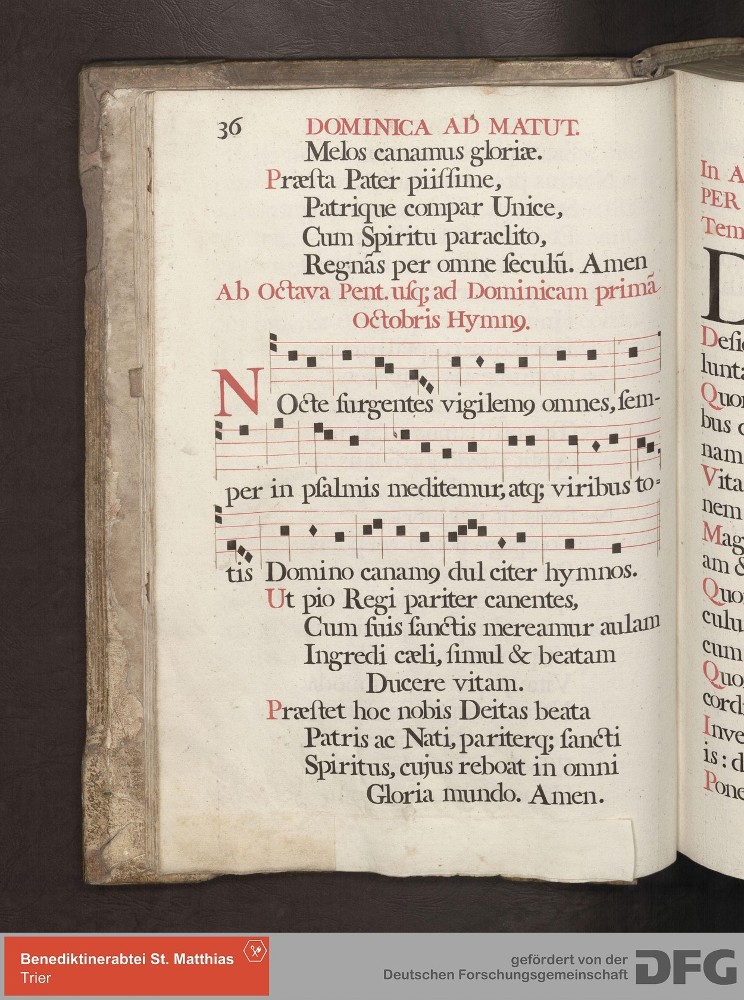 36
DOMINICA AD MATUT.
Melos canamus gloriæ.
Præſta Pater piiſſime,
Patrique compar Unice,
Cum Spiritu paraclito,
Regnãs per omne ſeculũ. Amen
Ab Octava Pent. uſq; ad Dominicam primã
Octobris Hymnꝯ.
NOcte ſurgentes vigilemꝯ omnes, ſem-
per in pſalmis meditemur, atq; viribus to-
tis Domino canamꝯ dulciter hymnos.
Ut pio Regi pariter canentes,
Cum ſuis ſanctis mereamur aulam
Ingredi cæli, ſimul & beatam
Ducere vitam.
Præſtet hoc nobis Deitas beata
Patris ac Nati, pariterq; ſancti
Spiritus, cujus reboat in omni
Gloria mundo. Amen.
In A
PER
Tem
D
Deſi
lunta
Quo
bus
nam
Vita
nem
Mag
am &
Quo
culu
cum
Quo
cord
Inve
is: d
Pone
Benediktinerabtei St. Matthias
Trier
gefördert von der
Deutschen Forschungsgemeinschaft
DFG